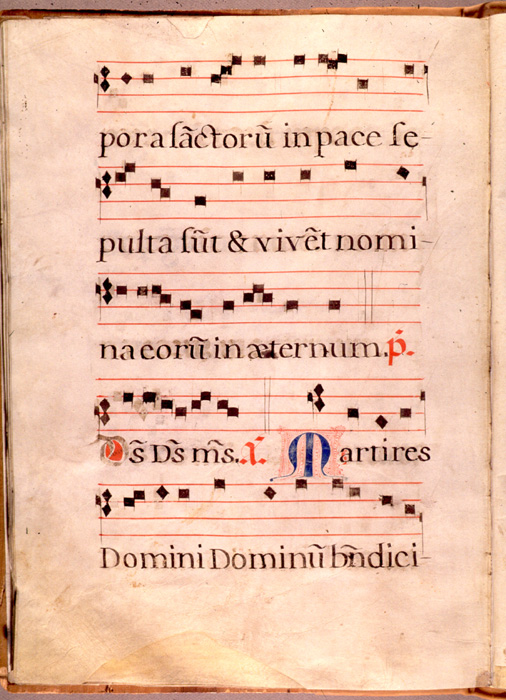 pora sa̅ctoru̅ in pace se-
pulta su̅t & vive̅t nomi-
na eoru̅ in æternum. p̄.
Ds̅ Ds̅ ms̅. A̅. Martires
Domini Dominu̅ bn̅dici-